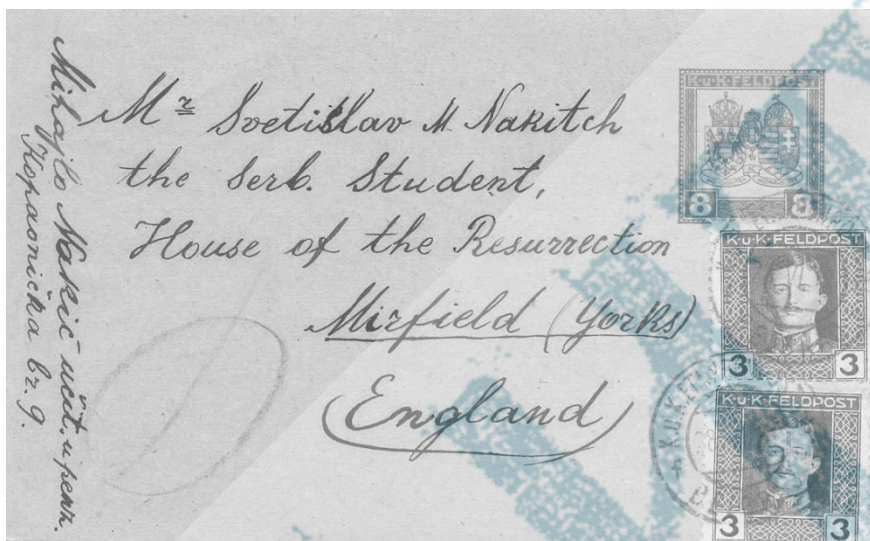 Mihajlo Nakić učit. u penz.
Kopaonička br. 9.
Mr Svetislav M. Nakitch
the Serb. Student,
House of the Resurrection
Mirfield (Yorks)
(England)
K·u·K·FELDPOST
8 8
K·u·K·FELDPOST
3 3
K·u·K·FELDPOST
3 3